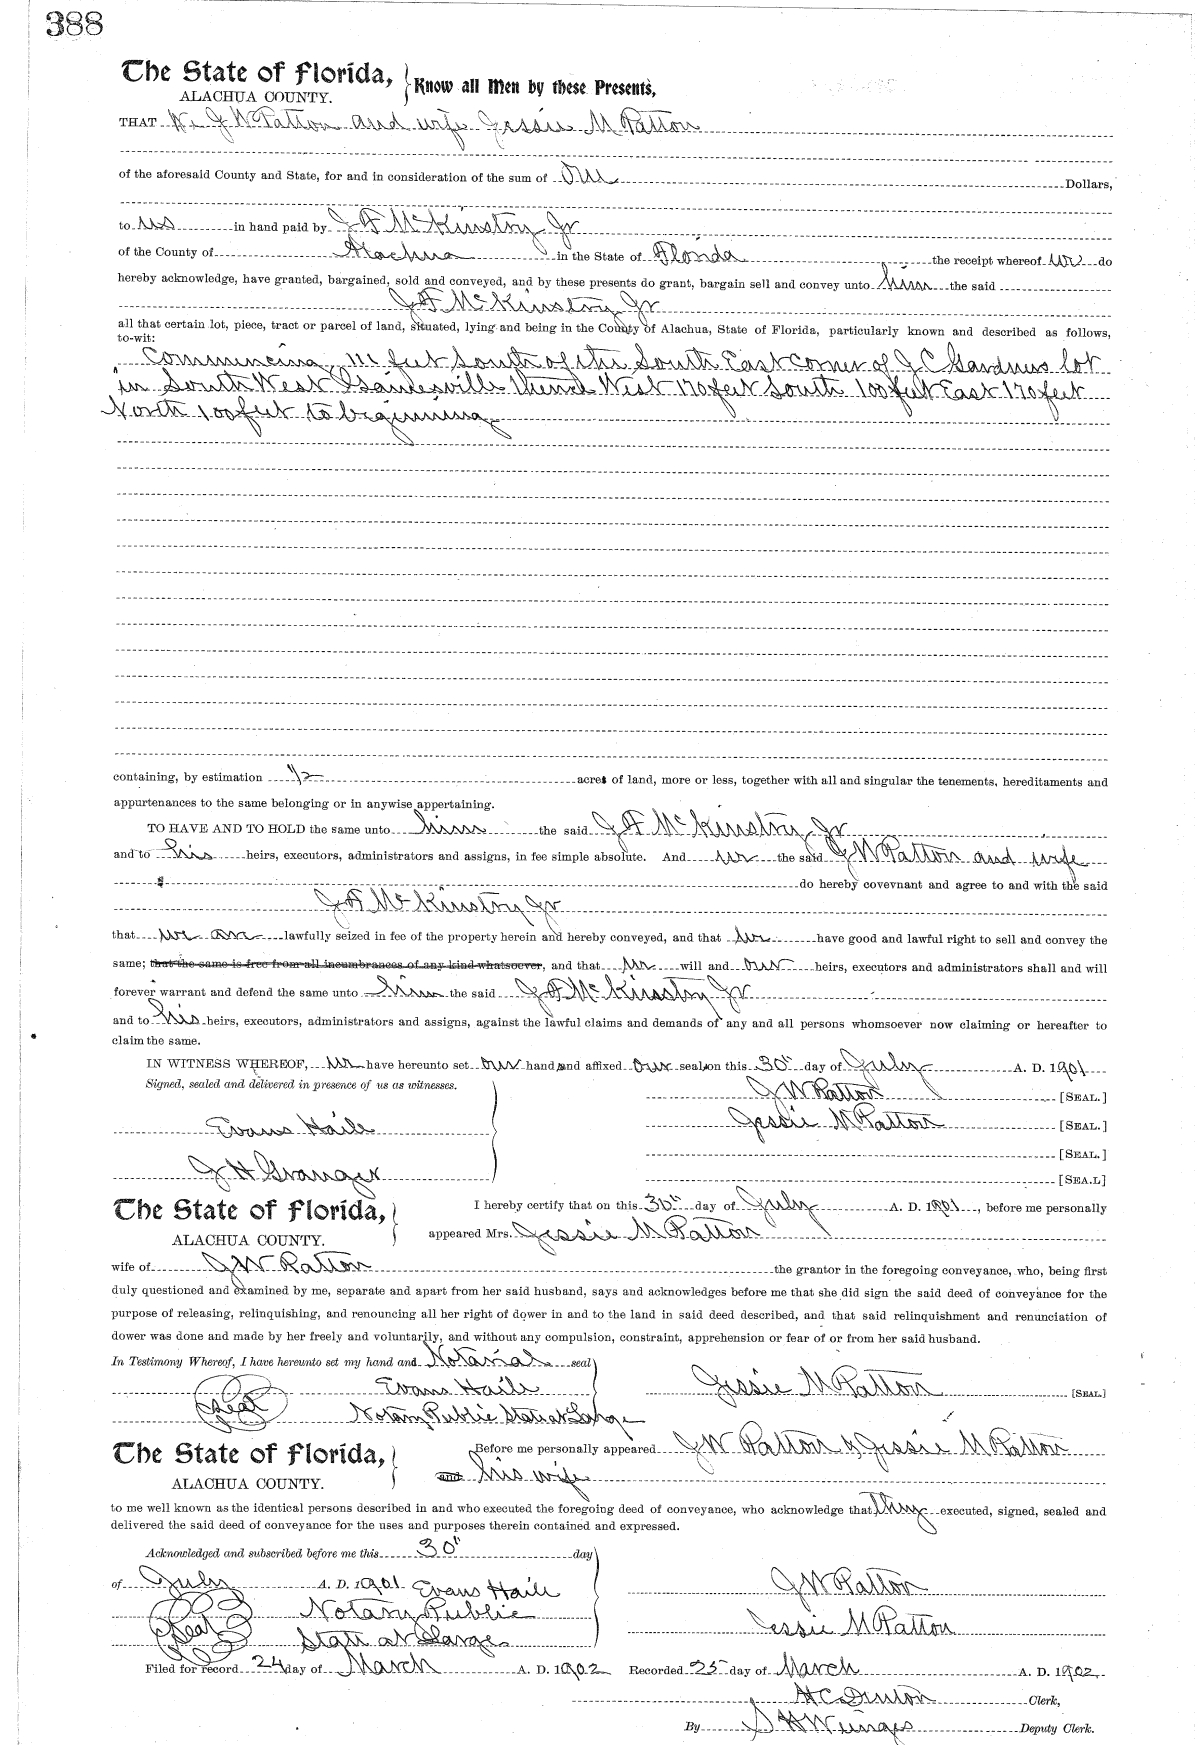 388
The State of Florida, Know all Men by these Presents,
ALACHUA COUNTY.
THAT We J W Patton and wife Jessie M Patton
of the aforesaid County and State, for and in consideration of the sum of One Dollars,
to us in hand paid by J F McKinstry Jr
of the County of Alachua in the State of Florida the receipt whereof we do
hereby acknowledge, have granted, bargained, sold and conveyed, and by these presents do grant, bargain sell and convey unto him the said
J F McKinstry Jr
all that certain lot, piece, tract or parcel of land, situated, lying and being in the County of Alachua, State of Florida, particularly known and described as follows,
to-wit:
Commencing 111 feet South of the South East Corner of J C Gardners lot
in South West Gainesville thence West 170 feet South 100 feet East 170 feet
North 100 feet to beginning
containing, by estimation 1/2 acres of land, more or less, together with all and singular the tenements, hereditaments and
appurtenances to the same belonging or in anywise appertaining.
TO HAVE AND TO HOLD the same unto him the said J F McKinstry Jr
and to his heirs, executors, administrators and assigns, in fee simple absolute. And we the said J W Patton and wife
do hereby covevnant and agree to and with the said
J F McKinstry Jr
that we are lawfully seized in fee of the property herein and hereby conveyed, and that we have good and lawful right to sell and convey the
same; that the same is free from all incumbrances of any kind whatsoever, and that we will and our heirs, executors and administrators shall and will
forever warrant and defend the same unto him the said J F McKinstry Jr
and to his heirs, executors, administrators and assigns, against the lawful claims and demands of any and all persons whomsoever now claiming or hereafter to
claim the same.
IN WITNESS WHEREOF, we have hereunto set our hand and affixed our seals on this 30" day of July A. D. 1901
Signed, sealed and delivered in presence of us as witnesses. J W Patton [SEAL.]
Jessie M Patton [SEAL.]
Evans Haile
[SEAL.]
J H Granger [SEA.L]
The State of Florida, I hereby certify that on this 30" day of July A. D. 1901, before me personally
ALACHUA COUNTY. appeared Mrs. Jessie M Patton
wife of J W Patton the grantor in the foregoing conveyance, who, being first
duly questioned and examined by me, separate and apart from her said husband, says and acknowledges before me that she did sign the said deed of conveyance for the
purpose of releasing, relinquishing, and renouncing all her right of dower in and to the land in said deed described, and that said relinquishment and renunciation of
dower was done and made by her freely and voluntarily, and without any compulsion, constraint, apprehension or fear of or from her said husband.
In Testimony Whereof, I have hereunto set my hand and Notarial seal
Evans Haile Jessie M Patton [SEAL]
Seal Notary Public State at Large
The State of Florida, Before me personally appeared J W Patton & Jessie M Patton
ALACHUA COUNTY. and his wife
to me well known as the identical persons described in and who executed the foregoing deed of conveyance, who acknowledge that they executed, signed, sealed and
delivered the said deed of conveyance for the uses and purposes therein contained and expressed.
Acknowledged and subscribed before me this 30" day
of July A. D. 1901 Evans Haile J W Patton
Seal Notary Public Jessie M Patton
State at Large
Filed for record 24 day of March A. D. 1902 Recorded 25 day of March A. D. 1902
H C Denton Clerk,
By S H Wienges Deputy Clerk.